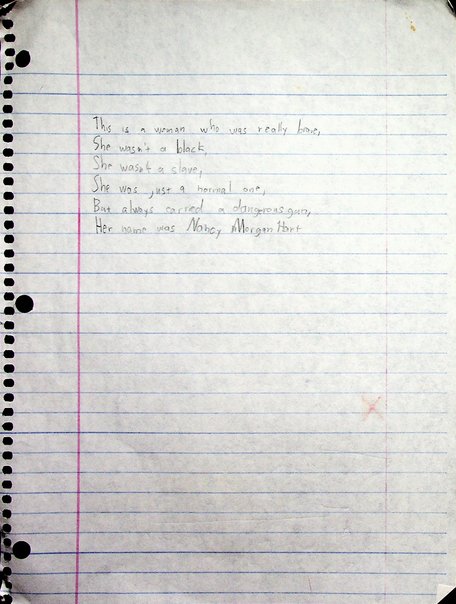 This is a woman who was really brave,
She wasn't a black,
She wasn't a slave,
She was just a normal one,
But always carried a dangrous gun,
Her name was Nancy Morgan Hart